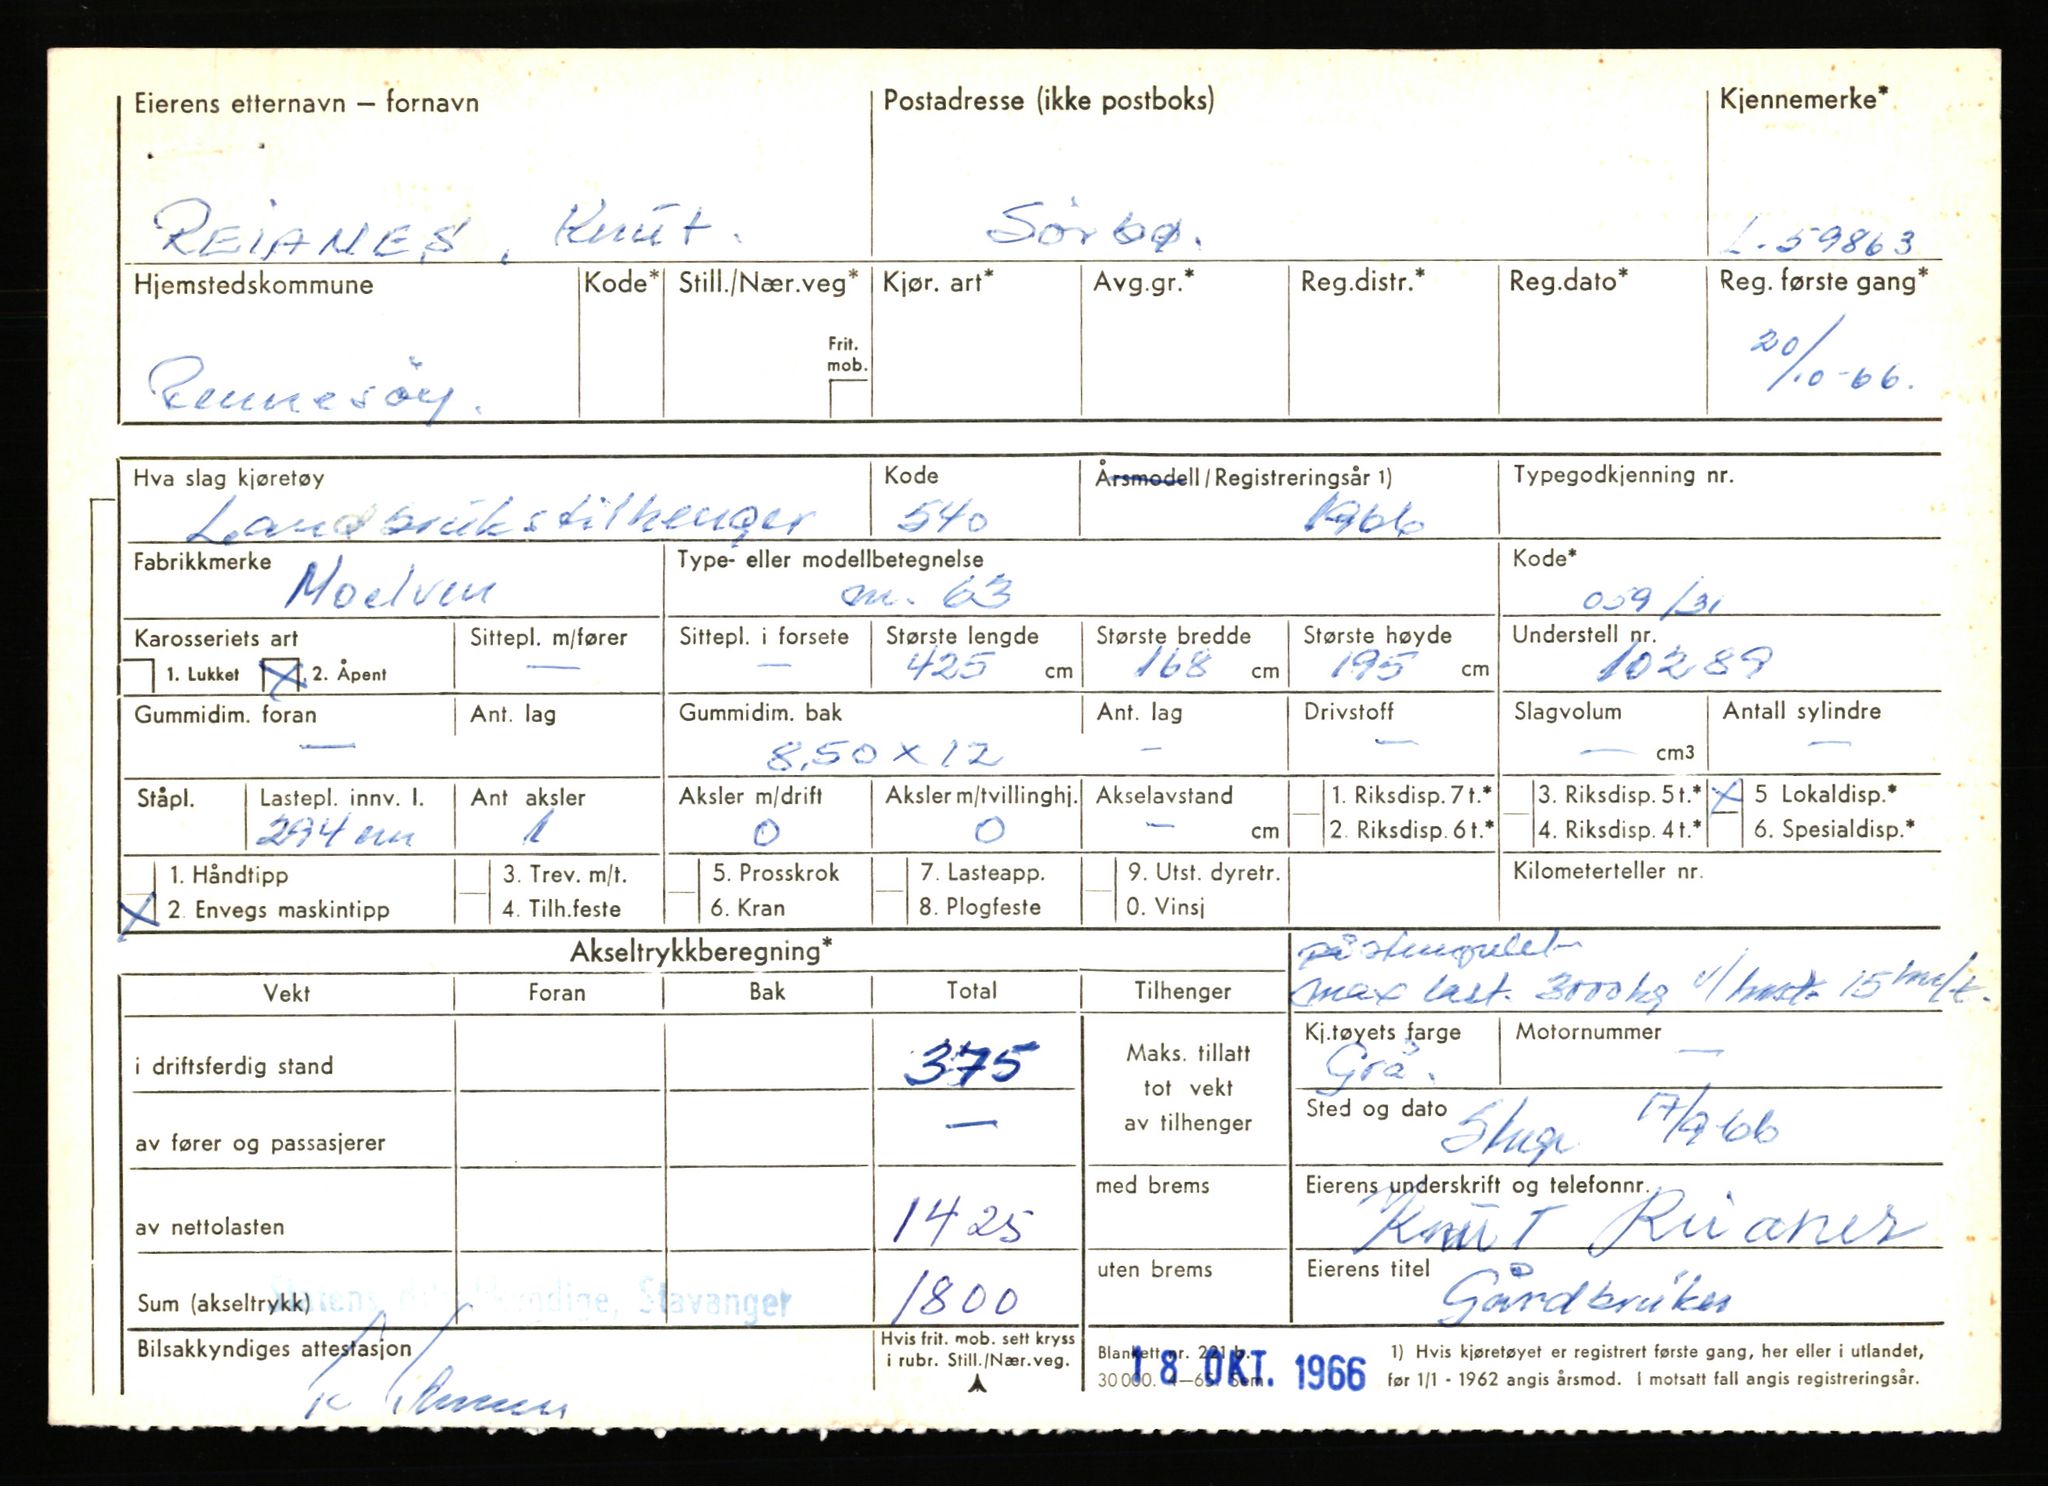 Eierens etternavn – fornavn Postadresse (ikke postboks) Kjennemerke*
REIANES, Knut. Sörbø. L-59863
Hjemstedskommune Kode* Still./Nær.veg* Kjør. art* Avg.gr.* Reg.distr.* Reg.dato* Reg. første gang*
Frit. mob.
Rennesöy. 20/10-66.
Hva slag kjøretøy Kode Årsmodell/Registreringsår 1) Typegodkjenning nr.
Landbrukstilhenger 540 1966
Fabrikkmerke Type- eller modellbetegnelse Kode*
Moelven m. 63 059/31
Karosseriets art Sittepl. m/fører Sittepl. i forsete Største lengde Største bredde Største høyde Understell nr.
1. Lukket X 2. Åpent — — 425 cm 168 cm 195 cm 10289
Gummidim. foran Ant. lag Gummidim. bak Ant. lag Drivstoff Slagvolum Antall sylindre
— 8,50 x 12 — — — cm3 —
Ståpl. Lastepl. innv. l. Ant aksler Aksler m/drift Aksler m/tvillinghj. Akselavstand 1. Riksdisp. 7 t.* 3. Riksdisp. 5 t.* X 5 Lokaldisp.*
294 cm 1 0 0 — cm 2. Riksdisp. 6 t.* 4. Riksdisp. 4 t.* 6. Spesialdisp.*
1. Håndtipp 3. Trev. m/t. 5. Prosskrok 7. Lasteapp. 9. Utst. dyretr. Kilometerteller nr.
X 2. Envegs maskintipp 4. Tilh.feste 6. Kran 8. Plogfeste 0. Vinsj
Akseltrykkberegning* påstemplet
Vekt Foran Bak Total Tilhenger max last. 3000 kg v/hast. 15 km/t.
i driftsferdig stand 375 Maks. tillatt tot vekt av tilhenger Kj.tøyets farge Motornummer
Grå. —
av fører og passasjerer — Sted og dato 17/9 66
av nettolasten 1425 med brems Eierens underskrift og telefonnr.
Knut Reianes
Sum (akseltrykk) 1800 uten brems Eierens titel
Statens bilsakkyndige, Stavanger Gårdbruker
Bilsakkyndiges attestasjon Hvis frit. mob. sett kryss i rubr. Still./Nær.veg. Blankett nr. 221 b.
30 000.
18 OKT. 1966
1) Hvis kjøretøyet er registrert første gang, her eller i utlandet,
før 1/1 - 1962 angis årsmod. I motsatt fall angis registreringsår.